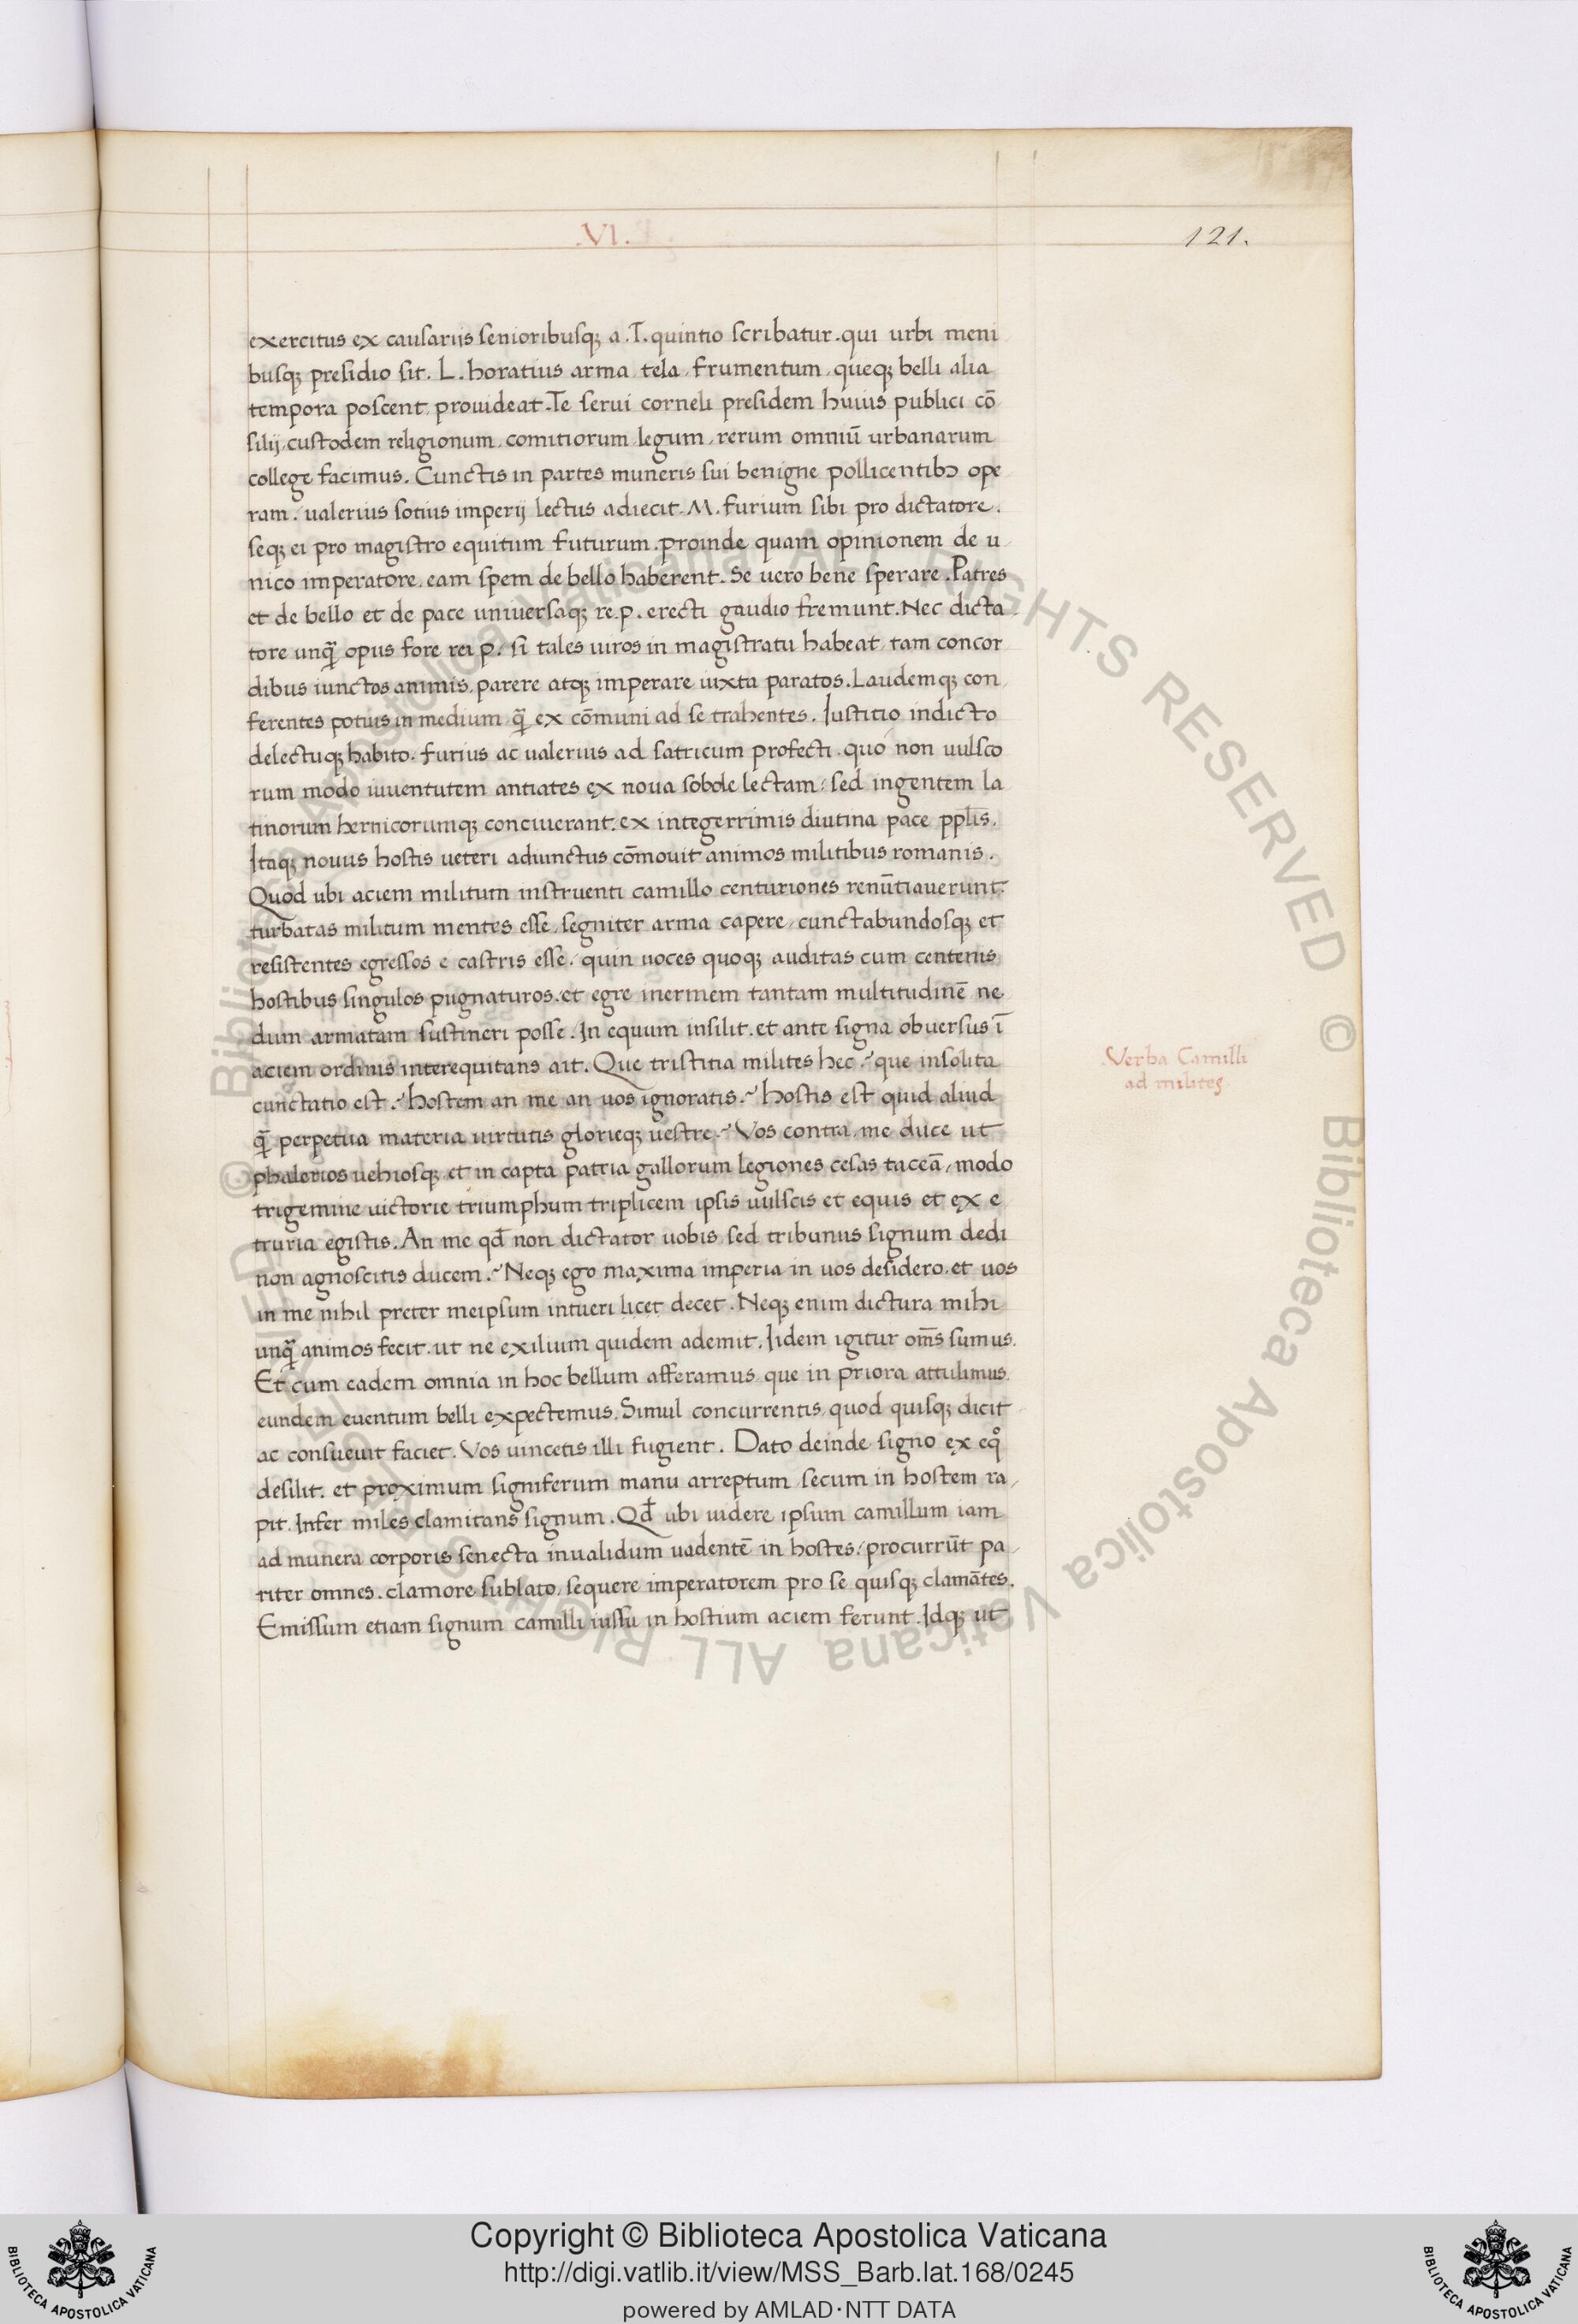 .VI.
121.
exercitus ex causariis senioribusq; a .T. quintio scribatur. qui urbi meni
busq; presidio sit. L. horatius arma tela frumentum, queq; belli alia
tempora poscent prouideat. Te serui corneli presidem huius publici cō
silij, custodem religionum, comitiorum legum, rerum omniū urbanarum
college facimus. Cunctis in partes muneris sui benigne pollicentibꝫ ope
ram: ualerius sotius imperij lectus adiecit. M. furium sibi pro dictatore.
seq; ei pro magistro equitum futurum. proinde quam opinionem de u
nico imperatore, eam spem de bello haberent. Se uero bene sperare. Patres
et de bello et de pace universaq; re.p. erecti gaudio fremunt. Nec dicta
tore unq̄ opus fore rei p. si tales uiros in magistratu habeat tam concor
dibus iunctos animis, parere atq; imperare iuxta paratos. Laudemq; con
ferentes potius in medium q̄ ex cōmuni ad se trahentes. Iustitio indicto
delectuq; habito. furius ac ualerius ad satricum profecti. quo non uulsco
rum modo iuuentutem antiates ex noua sobole lectam: sed ingentem la
tinorum hernicorumq; conciuerant. ex integerrimis diutina pace pplis̄.
Itaq; nouus hostis ueteri adiunctus cōmouit animos militibus romanis.
Quod ubi aciem militum instruenti camillo centuriones renūtiauerunt:
turbatas militum mentes esse, segniter arma capere, cunctabundosq; et
resistentes egressos e castris esse, quin uoces quoq; auditas cum centenis
hostibus singulos pugnaturos. et egre inermem tantam multitudinē ne
dum armatam sustineri posse. In equum insilit. et ante signa obuersus ī
aciem ordinis interequitans ait. Que tristitia milites hec? que insolita
cunctatio est? hostem an me an uos ignoratis? hostis est quid aliud
q̄ perpetua materia uirtutis glorieq; uestre? Vos contra, me duce ut
phalerios uehiosq; et in capta patria gallorum legiones cesas taceā, modo
trigemine uictorie triumphum triplicem ipsis uulscis et equis et ex e
truria egistis. An me qd̄ non dictator uobis sed tribunus signum dedi
non agnoscitis ducem? Neq; ego maxima imperia in uos desidero. et uos
in me nihil preter meipsum intueri licet decet. Neq; enim dictura mihi
unq̄ animos fecit. ut ne exilium quidem ademit. Iidem igitur om̄s sumus.
Et cum eadem omnia in hoc bellum afferamus que in priora attulimus.
eundem euentum belli expectemus. Simul concurrentis, quod quisq; dicit
ac consueuit faciet. Vos uincetis illi fugient. Dato deinde signo ex eqͦ
desilit. et proximum signiferum manu arreptum secum in hostem ra
pit. Infer miles clamitans signum. Qd̄ ubi uidere ipsum camillum iam
ad munera corporis senecta inualidum uadentē in hostes: procurrūt pa
riter omnes. clamore sublato, sequere imperatorem pro se quisq; clamātes.
Emissum etiam signum camilli iussu in hostium aciem ferunt. Idq; ut
Verba Camilli
ad milites.
© Biblioteca Apostolica Vaticana ALL RIGHTS RESERVED
© Biblioteca Apostolica Vaticana ALL RIGHTS RESERVED
Copyright © Biblioteca Apostolica Vaticana
http://digi.vatlib.it/view/MSS_Barb.lat.168/0245
powered by AMLAD·NTT DATA
BIBLIOTECA APOSTOLICA VATICANA
BIBLIOTECA APOSTOLICA VATICANA